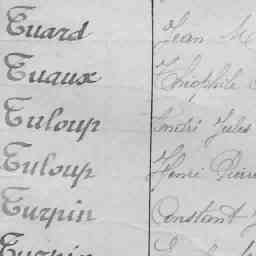 Tuard Jean M
Tuaux Théophile
Tuloup André Jules
Tuloup Henri Pierre
Turpin Constant J
Turpin